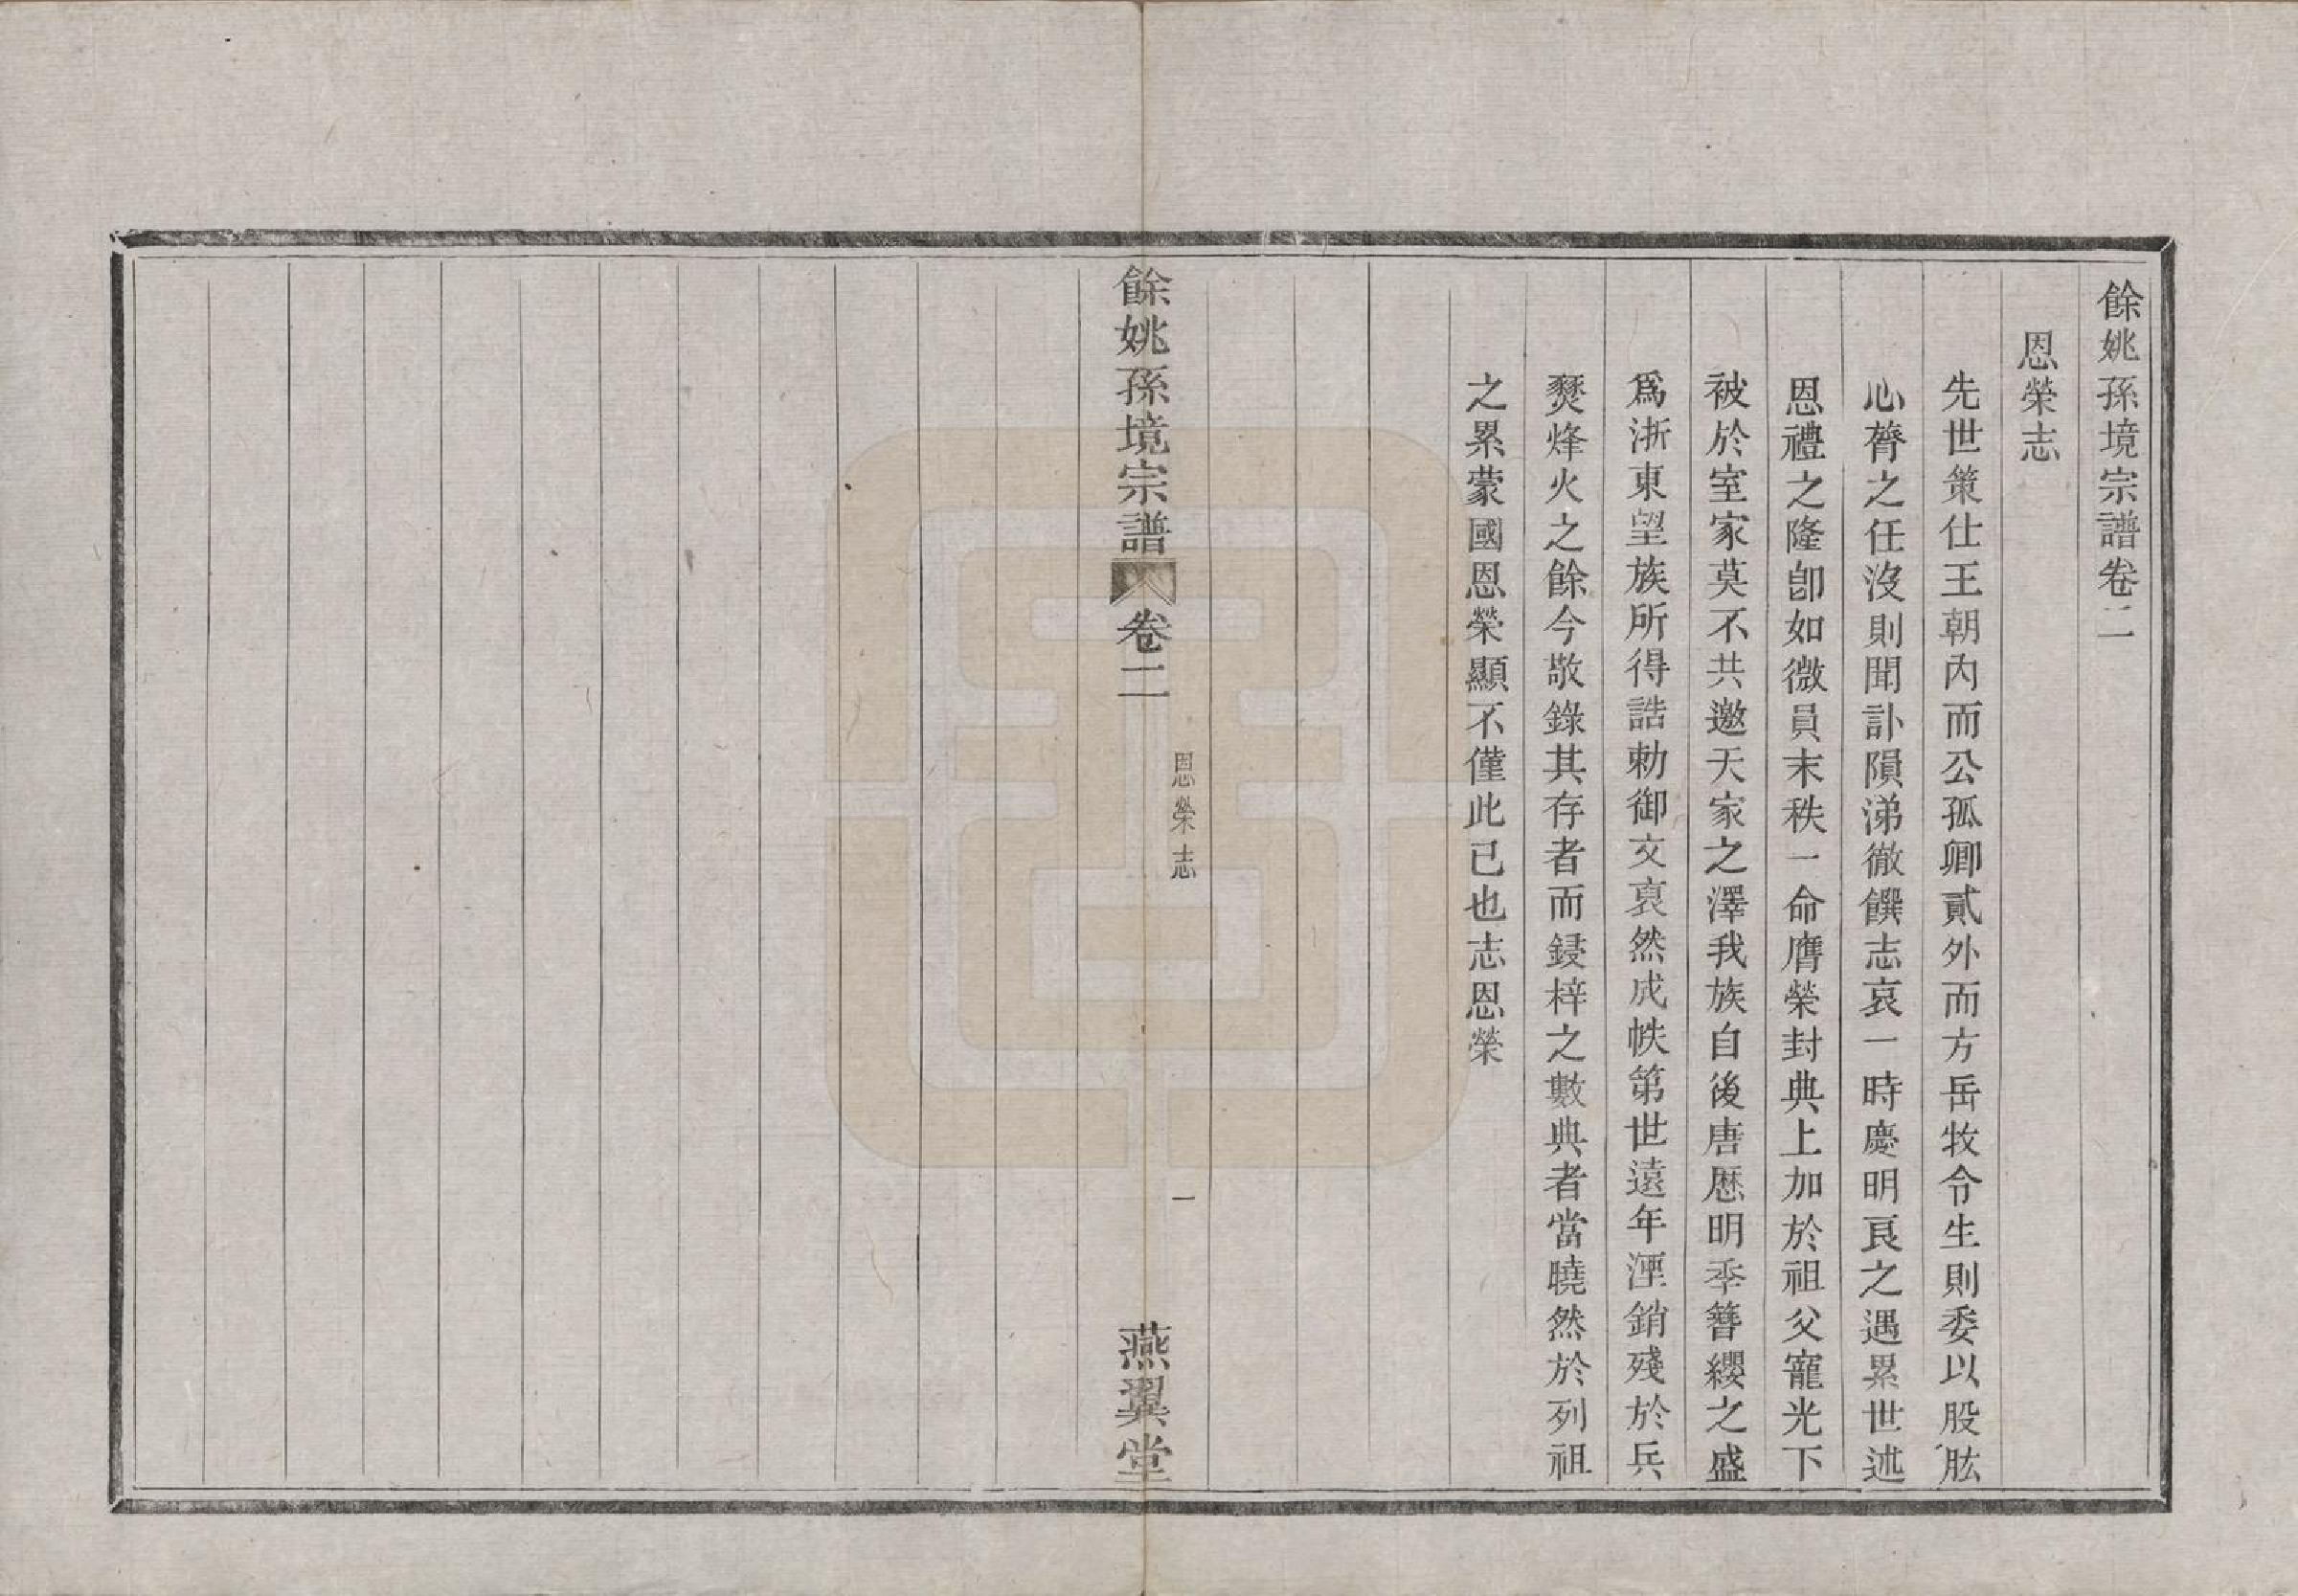 餘姚孫境宗譜卷二
恩榮志
先世策仕王朝內而公孤卿貳外而方岳牧令生則委以股肱
心膂之任沒則聞訃隕涕徹饌志哀一時慶明良之遇累世述
恩禮之隆卽如微員末秩一命膺榮封典上加於祖父寵光下
被於室家莫不共邀天家之澤我族自後唐歷明季簪纓之盛
爲浙東望族所得誥勅御文裒然成帙第世遠年湮銷殘於兵
燹烽火之餘今敬錄其存者而鋟梓之數典者當曉然於列祖
之累蒙國恩榮顯不僅此已也志恩榮
餘姚孫境宗譜 卷二
恩榮志
一
燕翼堂